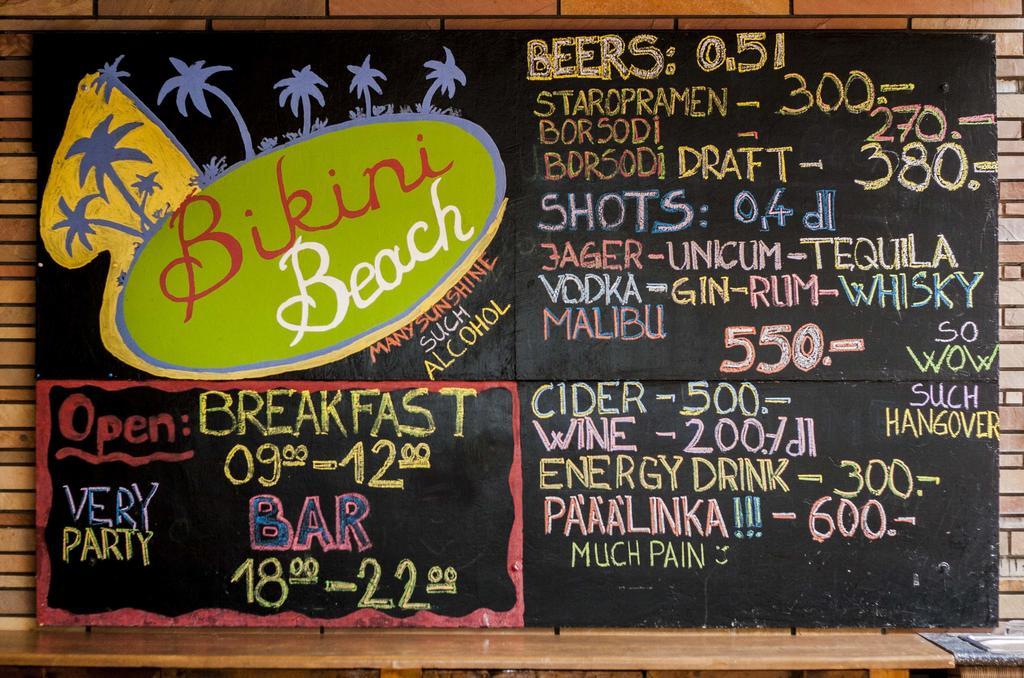 Bikini
Beach
MANY SUNSHINE
SUCH
ALCOHOL
Open: BREAKFAST
09⁰⁰-12⁰⁰
VERY
PARTY
BAR
18⁰⁰-22⁰⁰
BEERS: 0.5l
STAROPRAMEN - 300.-
BORSODI - 270.-
BORSODI DRAFT - 380.-
SHOTS: 0,4 dl
JAGER-UNICUM-TEQUILA
VODKA-GIN-RUM-WHISKY
MALIBU
550.-
SO
WOW
SUCH
HANGOVER
CIDER - 500.-
WINE - 200./dl
ENERGY DRINK - 300.-
PÁÁÁLINKA!!! - 600.-
MUCH PAIN :)